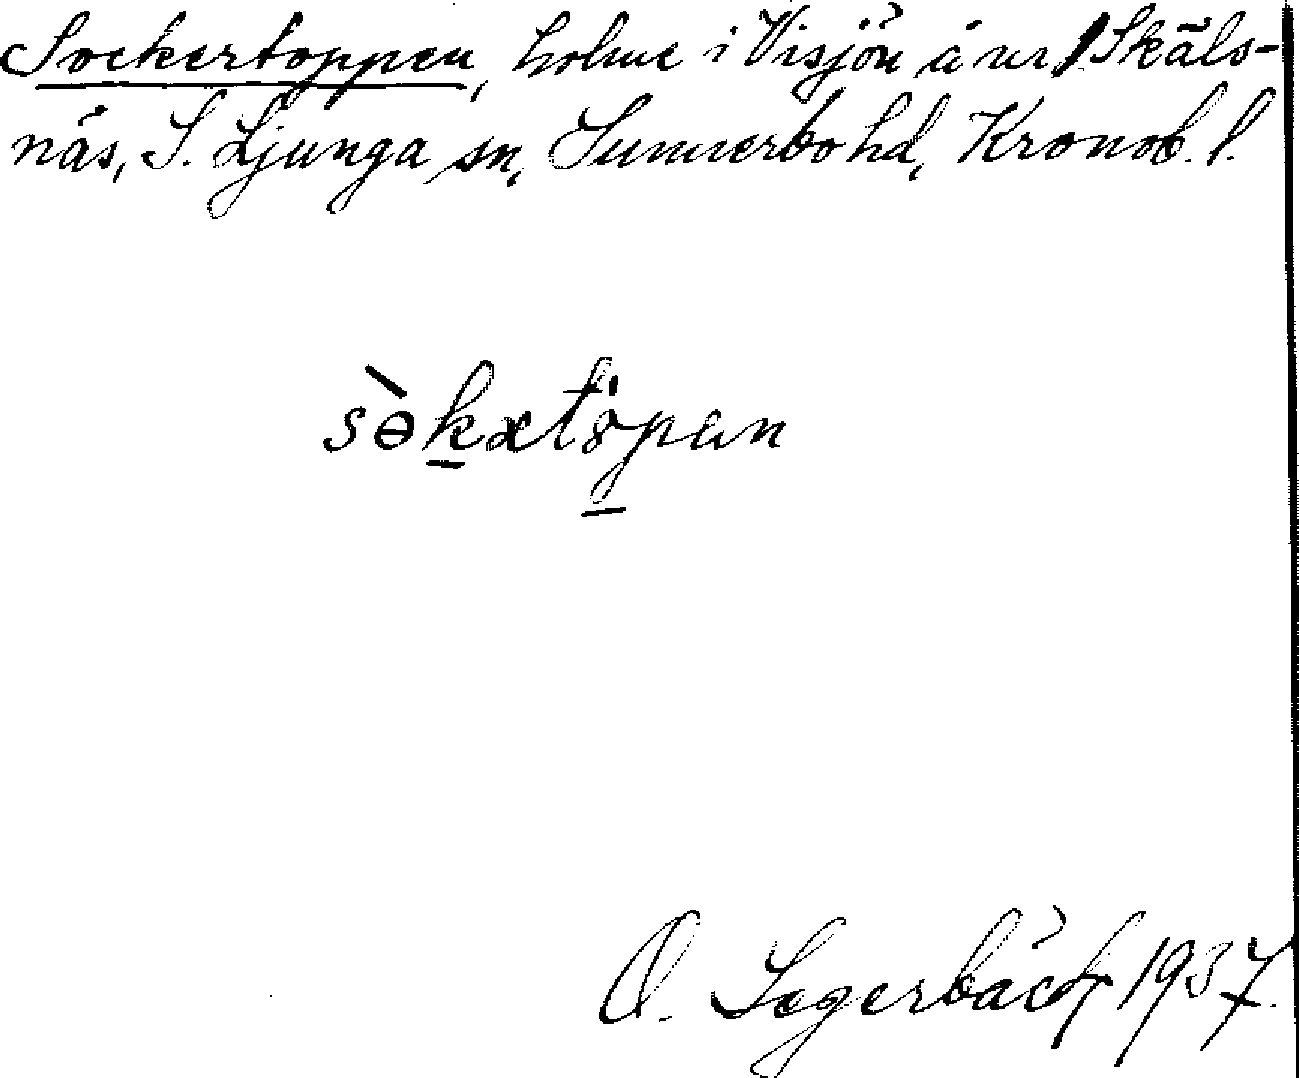 Sockertoppen, holme i Visjön å nr 1 Skäls-
näs, S. Ljunga sn, Sunnerbo hd, Kronob. l.
sɵ̀kxtö̀pan
O. Segerbäck 1937.